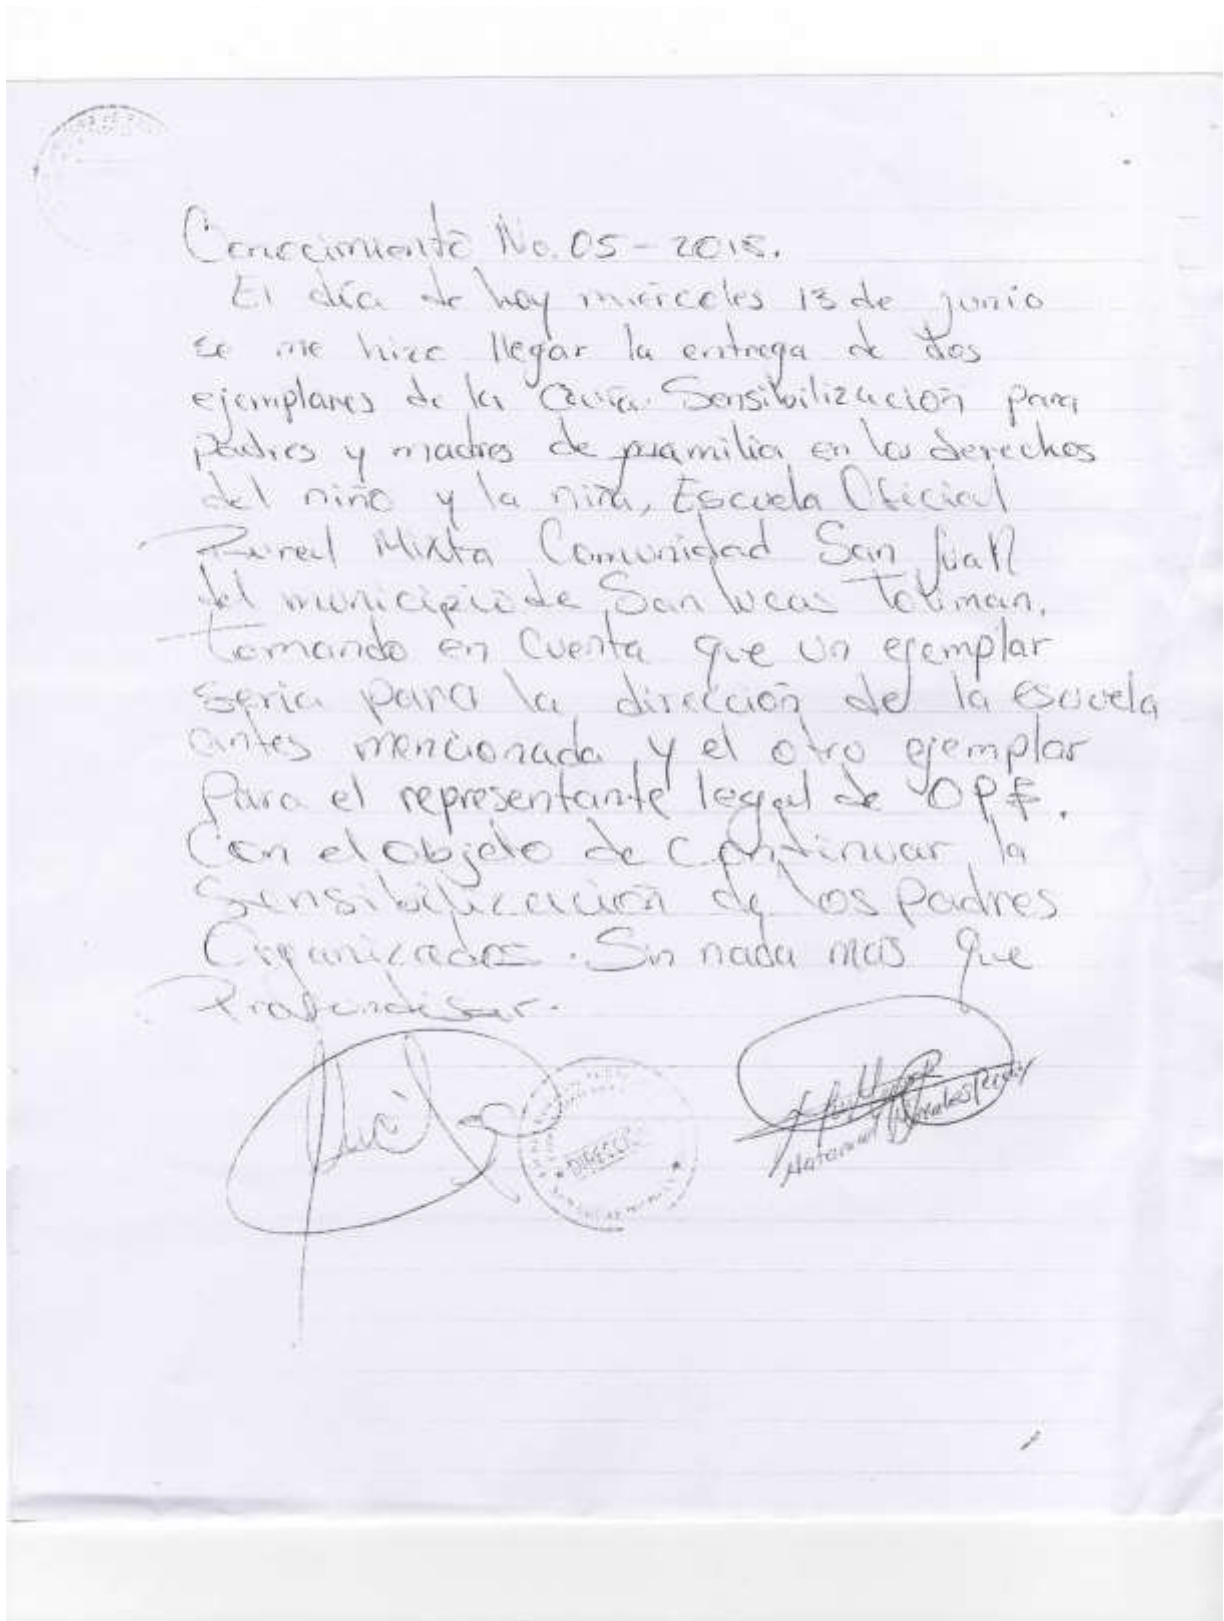 Conocimiento No. 05-2018.
El día de hoy miércoles 13 de junio
se me hizo llegar la entrega de dos
ejemplares de la Guía. Sensibilización para
padres y madres de familia en los derechos
del niño y la niña, Escuela Oficial
Rural Mixta Comunidad San Juan
del municipio de San Lucas Tolimán.
tomando en cuenta que un ejemplar
seria para la dirección de la escuela
antes mencionada y el otro ejemplar
para el representante legal de OPF.
Con el objeto de continuar la
Sensibilización de los padres
Organizados. Sin nada mas que
Profundisar.
DIRECCIÓN